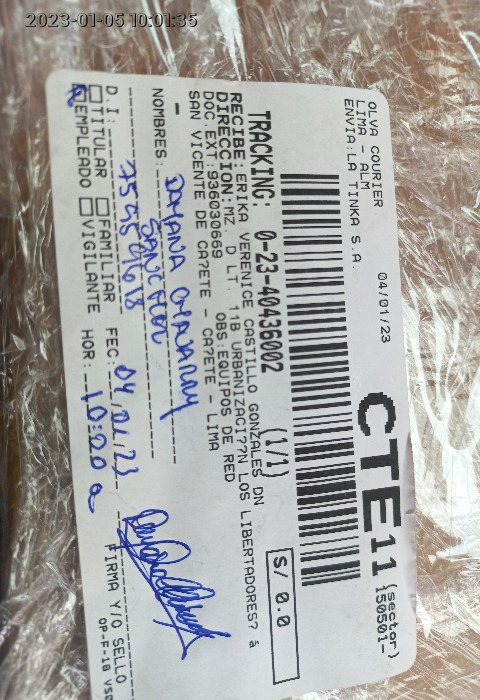 2023-01-05 10:01:35
OLVA COURIER 04/01/23
LIMA - ALM
ENVIA:LA TINKA S.A.
CTE11 (sector)
150501-
TRACKING: 0-23-40436002 (1/1)
S/ 0.0
RECIBE: ERIKA VERENICE CASTILLO GONZALES DN
DIRECCION:MZ. D LT. 11B URBANIZACI??N LOS LIBERTADORES? á
DOC.EXT:936030669 OBS:EQUIPOS DE RED
SAN VICENTE DE CA?ETE - CA?ETE - LIMA
-
NOMBRES: DAYANA
D.I:
TITULAR FAMILIAR FEC: 04/01/23
EMPLEADO VIGILANTE HOR: 10:20 a
FIRMA Y/O SELLO
OP-F-18